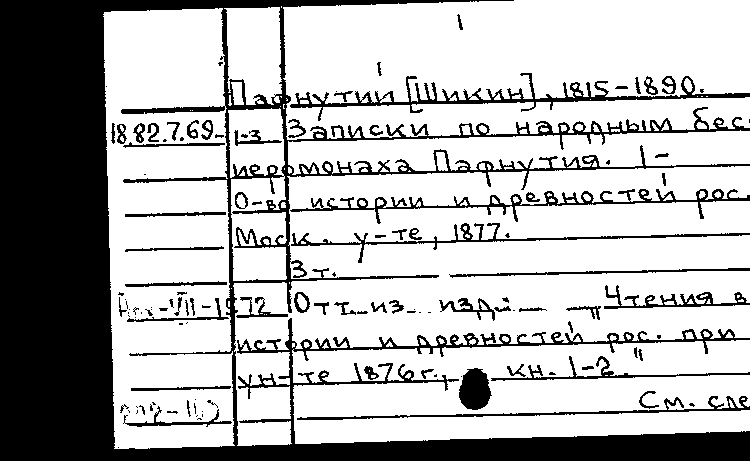 Пафнутий [Шикин], 1815-1890.
18.82.7.69- 1-3 Записки по народным бес
иеромонаха Пафнутия. 1-
О-во истории и древностей рос.
Моск. у-те, 1877.
3 т.
VII-1972 Отт. из изд.: "Чтения в
истории и древностей рос. при
ун-те 1876г., кн. 1-2."
См. сле